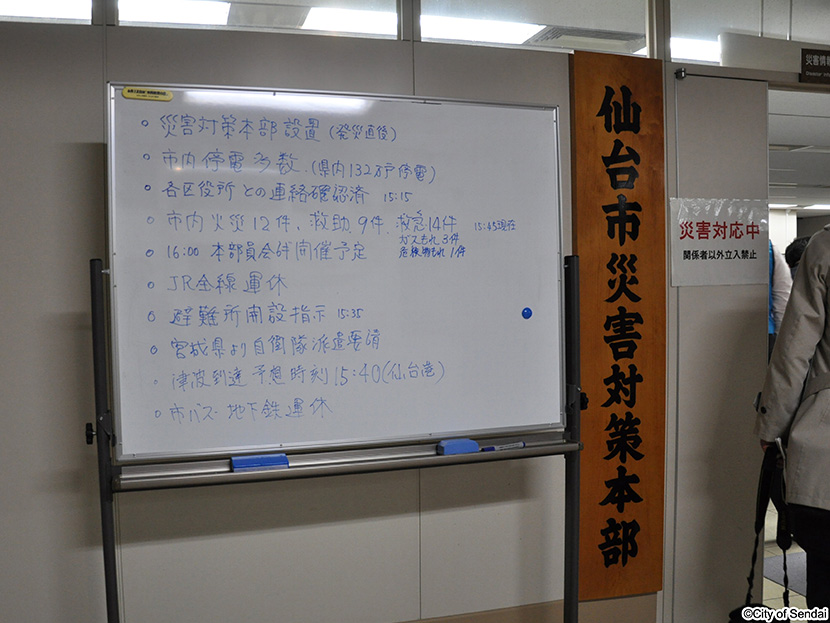 ◦ 災害対策本部設置 (発災直後)
◦ 市内停電多数. (県内132万戸停電)
◦ 各区役所との連絡確認済 15:15
◦ 市内火災12件、救助9件、救急14件 15:45現在
ガスもれ3件
危険物もれ1件
◦ 16:00 本部員会议開催予定
◦ JR全線運休
◦ 避難所開設指示 15:35
◦ 宮城県より自衛隊派遣要請
◦ 津波到達予想時刻15:40(仙台港)
◦ 市バス・地下鉄運休
仙台市災害対策本部
災害対応中
関係者以外立入禁止
災害情報
©City of Sendai